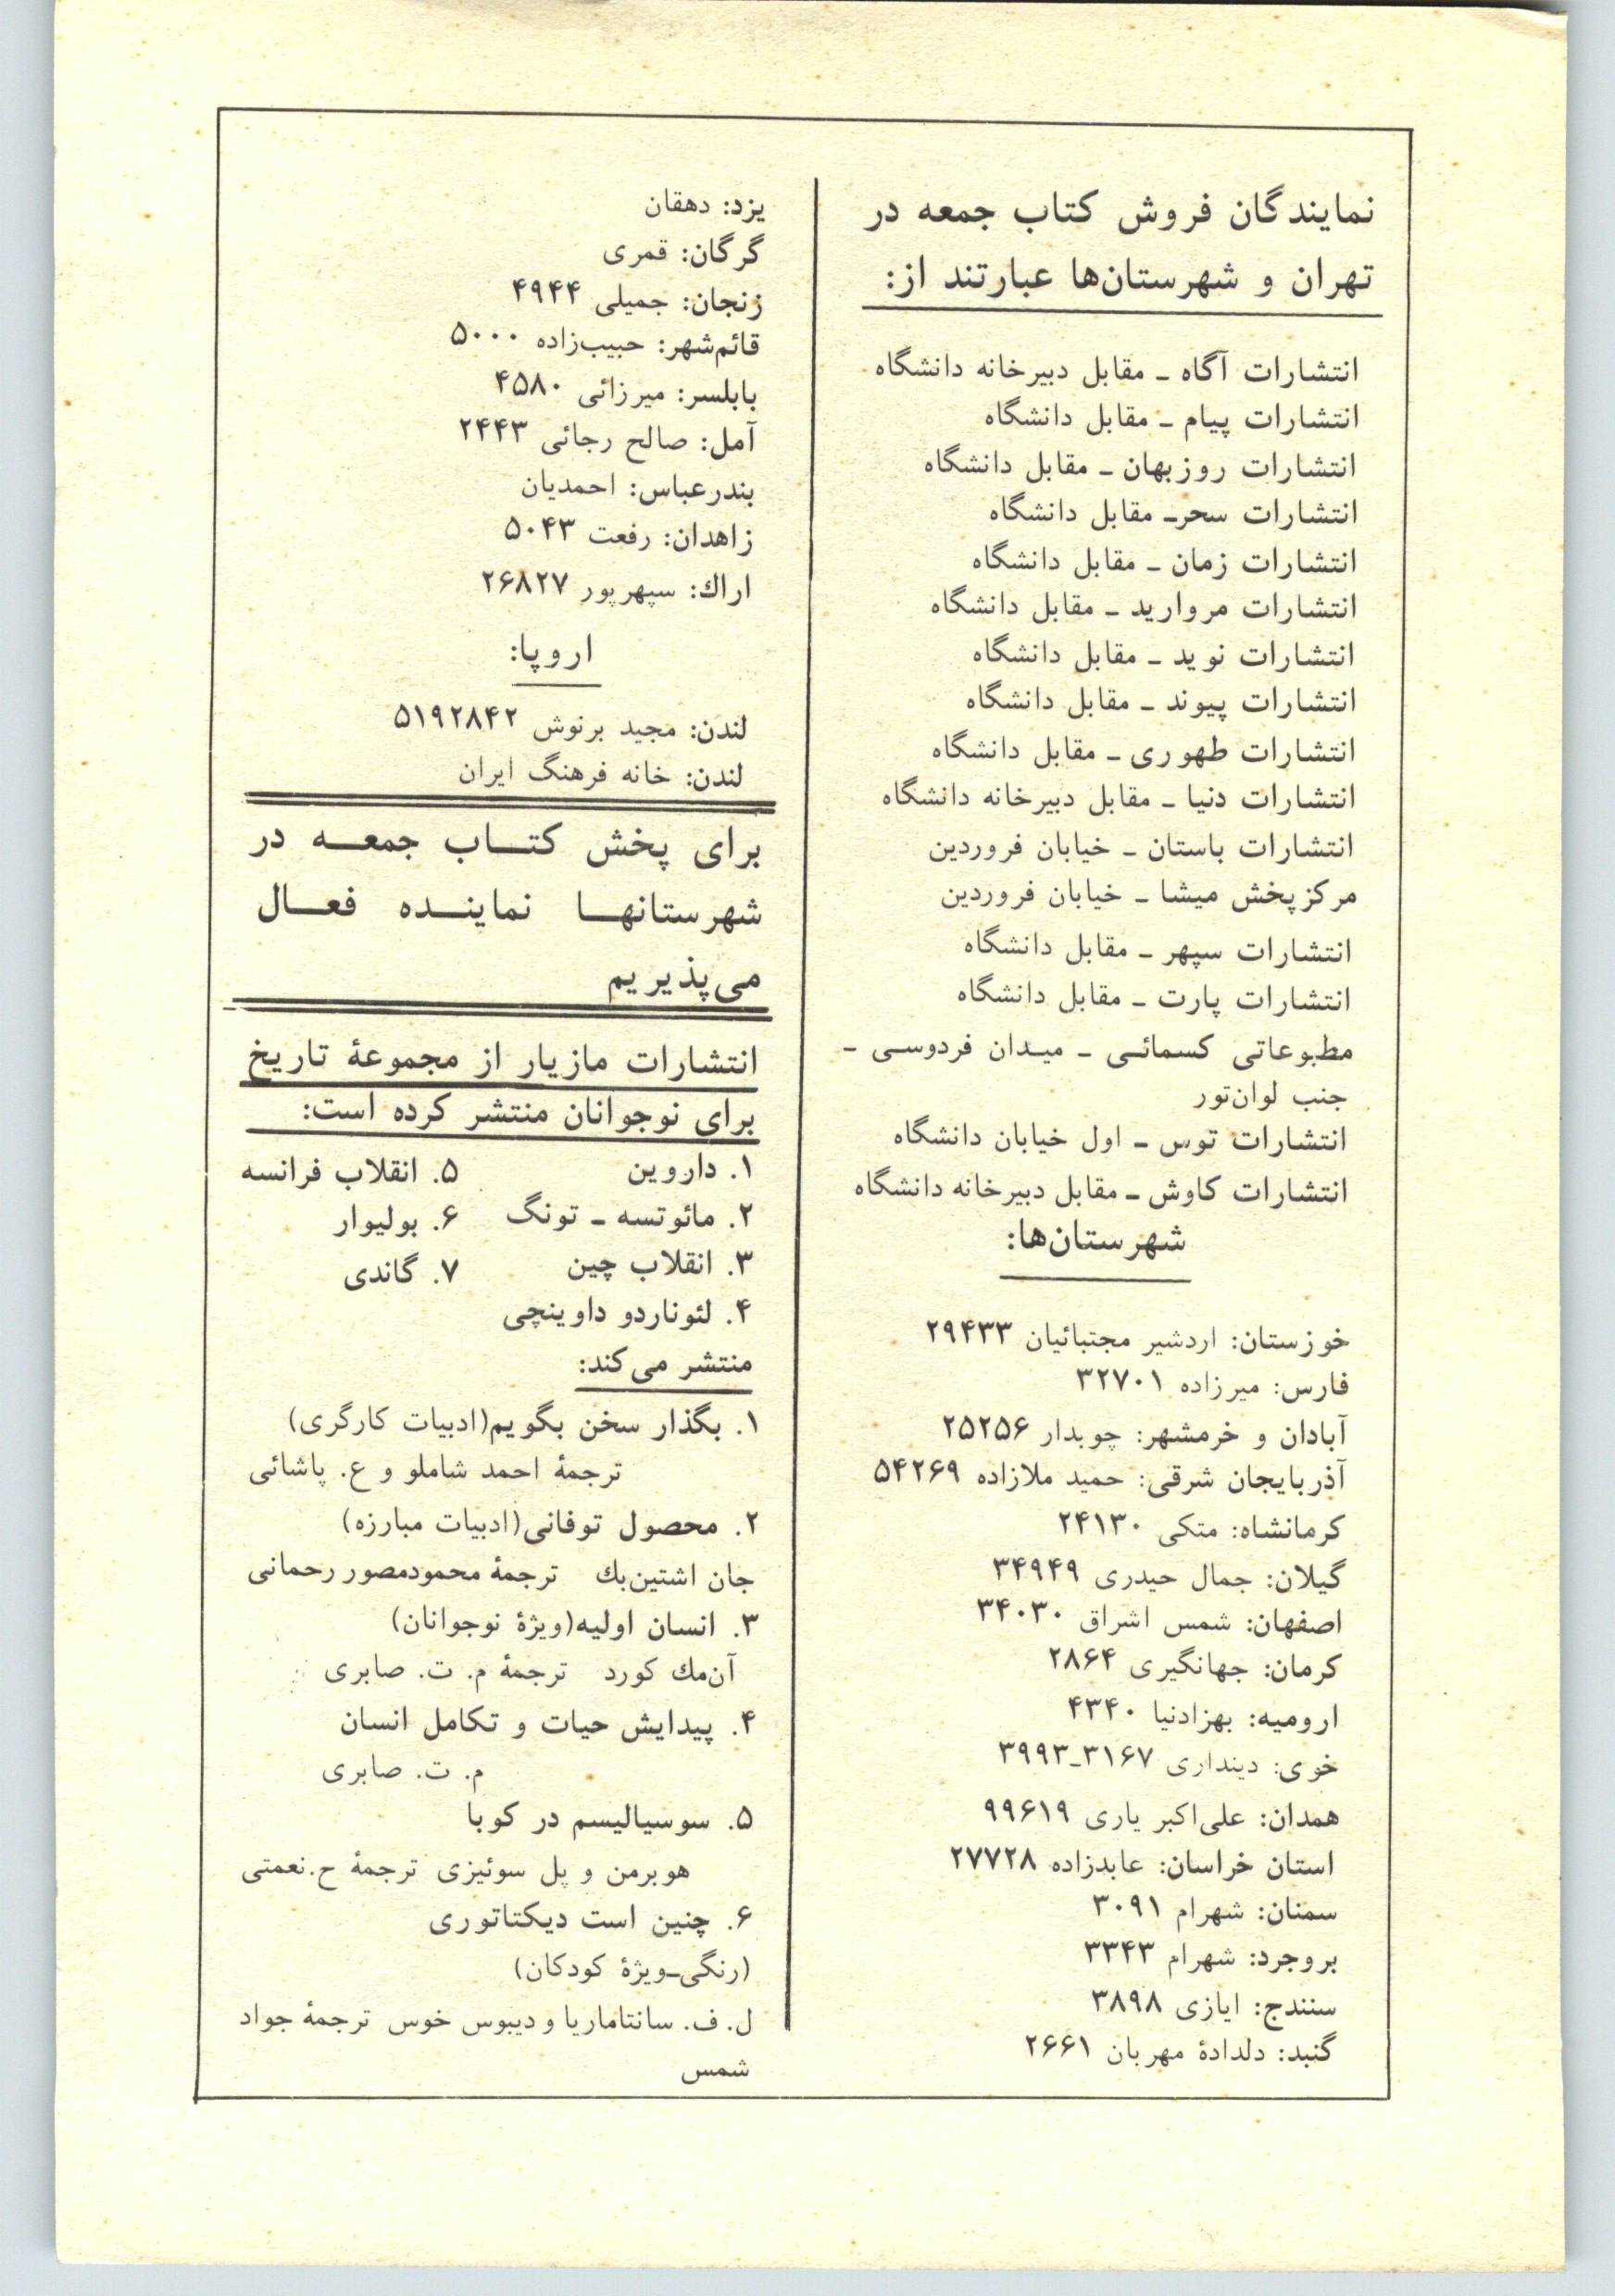 نمایندگان فروش کتاب جمعه در
تهران و شهرستان‌ها عبارتند از:
انتشارات آگاه ـ مقابل دبیرخانه دانشگاه
انتشارات پیام ـ مقابل دانشگاه
انتشارات روزبهان ـ مقابل دانشگاه
انتشارات سحرـ مقابل دانشگاه
انتشارات زمان ـ مقابل دانشگاه
انتشارات مروارید ـ مقابل دانشگاه
انتشارات نوید ـ مقابل دانشگاه
انتشارات پیوند ـ مقابل دانشگاه
انتشارات طهوری ـ مقابل دانشگاه
انتشارات دنیا ـ مقابل دبیرخانه دانشگاه
انتشارات باستان ـ خیابان فروردین
مرکزپخش میشا ـ خیابان فروردین
انتشارات سپهر ـ مقابل دانشگاه
انتشارات پارت ـ مقابل دانشگاه
مطبوعاتی کسمائی ـ میدان فردوسی ـ
جنب لوان‌تور
انتشارات توس ـ اول خیابان دانشگاه
انتشارات کاوش ـ مقابل دبیرخانه دانشگاه
شهرستان‌ها:
خوزستان: اردشیر مجتبائیان ۲۹۴۳۳
فارس: میرزاده ۳۲۷۰۱
آبادان و خرمشهر: چوبدار ۲۵۲۵۶
آذربایجان شرقی: حمید ملازاده ۵۴۲۶۹
کرمانشاه: متکی ۲۴۱۳۰
گیلان: جمال حیدری ۳۴۹۴۹
اصفهان: شمس اشراق ۳۴۰۳۰
کرمان: جهانگیری ۲۸۶۴
ارومیه: بهزادنیا ۴۳۴۰
خوی: دینداری ۳۱۶۷ـ۳۹۹۳
همدان: علی‌اکبر یاری ۹۹۶۱۹
استان خراسان: عابدزاده ۲۷۷۲۸
سمنان: شهرام ۳۰۹۱
بروجرد: شهرام ۳۳۴۳
سنندج: ایازی ۳۸۹۸
گنبد: دلدادهٔ مهربان ۲۶۶۱
یزد: دهقان
گرگان: قمری
زنجان: جمیلی ۴۹۴۴
قائم‌شهر: حبیب‌زاده ۵۰۰۰
بابلسر: میرزائی ۴۵۸۰
آمل: صالح رجائی ۲۴۴۳
بندرعباس: احمدیان
زاهدان: رفعت ۵۰۴۳
اراك: سپهرپور ۲۶۸۲۷
اروپا:
لندن: مجید برنوش ۵۱۹۲۸۴۲
لندن: خانه فرهنگ ایران
برای پخش کتـاب جمعـه در
شهرستانهـا نماینـده فعـال
می‌پذیریم
انتشارات مازیار از مجموعهٔ تاریخ
برای نوجوانان منتشر کرده است:
۱. داروین ۵. انقلاب فرانسه
۲. مائوتسه ـ تونگ ۶. بولیوار
۳. انقلاب چین ۷. گاندی
۴. لئوناردو داوینچی
منتشر می‌کند:
۱. بگذار سخن بگویم(ادبیات کارگری)
ترجمهٔ احمد شاملو و ع. پاشائی
۲. محصول توفانی(ادبیات مبارزه)
جان اشتین‌بك ترجمهٔ محمودمصور رحمانی
۳. انسان اولیه(ویژهٔ نوجوانان)
آن‌مك کورد ترجمهٔ م. ت. صابری
۴. پیدایش حیات و تکامل انسان
م. ت. صابری
۵. سوسیالیسم در کوبا
هوبرمن و پل سوئیزی ترجمهٔ ح.نعمتی
۶. چنین است دیکتاتوری
(رنگی‌ـویژهٔ کودکان)
ل. ف. سانتاماریا و دیبوس خوس ترجمهٔ جواد
شمس